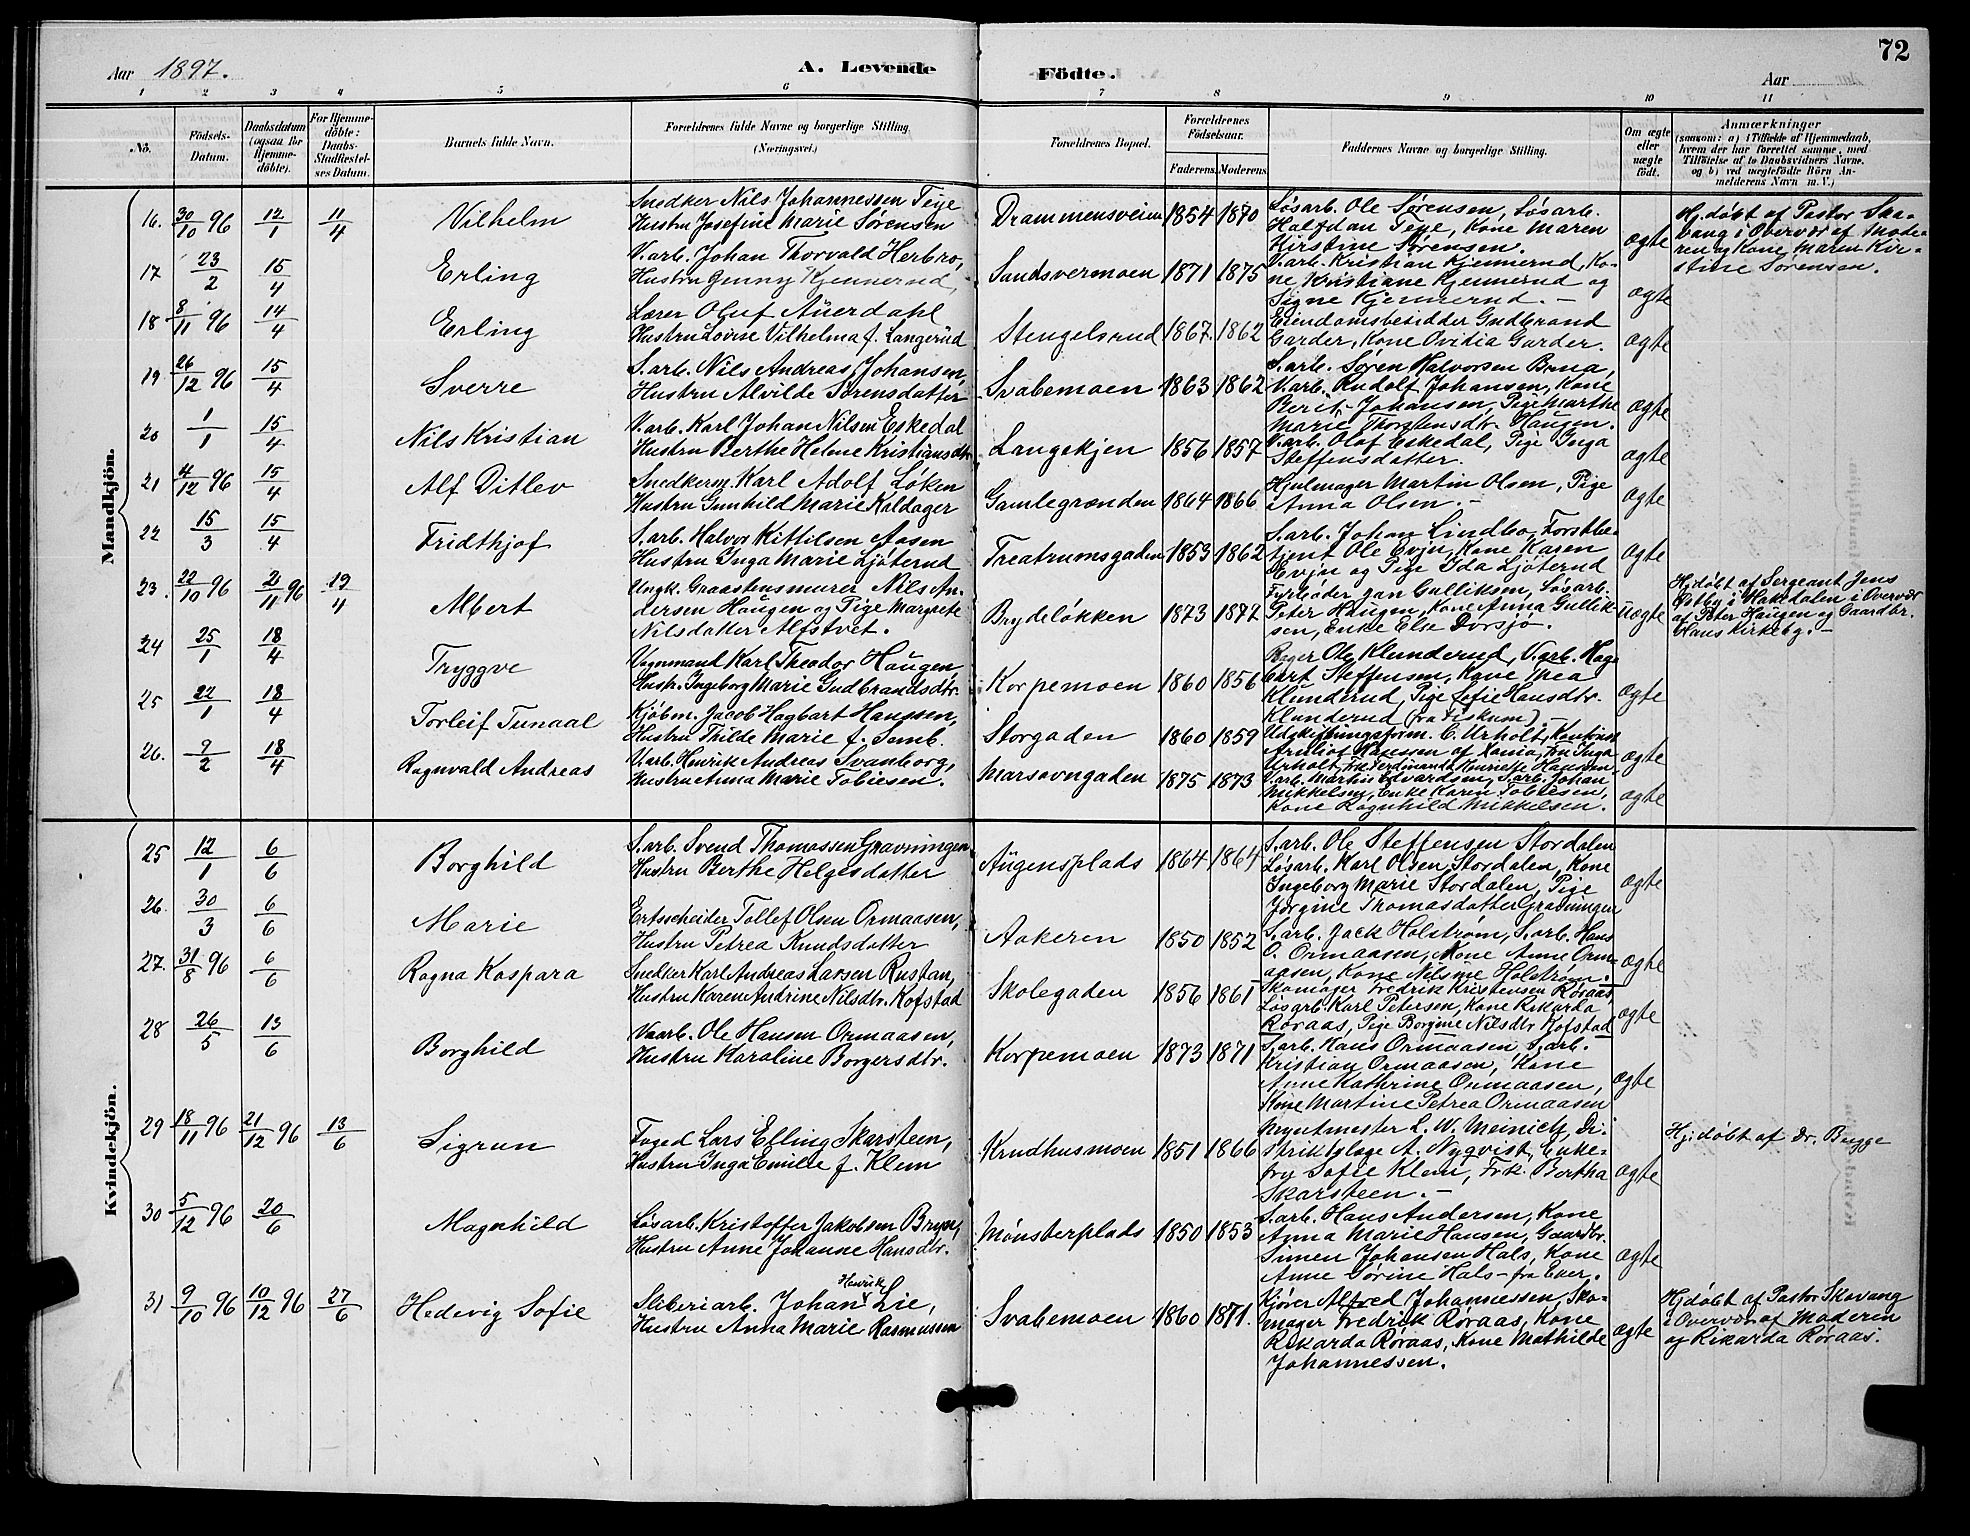 72
Aar 1897.
A. Levende
Födte.
Aar
1 2 3 4 5 6 7 8 9 10 11
No.
Födsels-Datum.
Daabsdatum (ogsaa for Hjemme-döbte).
For Hjemme-döbte: Daabs-Stadfæstel-ses Datum.
Barnets fulde Navn.
Forældrenes fulde Navne og borgerlige Stilling.
(Næringsvei.)
Forældrenes Bopæl.
Forældrenes Födselsaar.
Faderens. Moderens.
Faddernes Navne og borgerlige Stilling.
Om ægte eller uægte födt.
Anmærkninger
(saasom: a) i Tilfælde af Hjemmedaab, hvem der har forrettet samme, med Tilföielse af to Daabsvidners Navne, og b) ved uægtefödte Börn An-melderens Navn m. V.)
Mandkjön.
16. 30/10 96 12/1 11/4 Vilhelm
Snedker Nils Johannessen Teje
Hustru Josefine Marie Sørensen
Drammensveien 1854 1870
Løsarb. Ole Sørensen, Løsarb.
Halfdan Teje, Kone Maren
Kirstine Sørensen.
ægte
Hj.døbt af Pastor Ska-
vang i Overvær af Mode-
ren og Kone Maren Kir-
stine Sørensen.
17 23/2 15/4 Erling
V.arb. Johan Thorvald Herbro,
Hustru Genny Kjennerud,
Sandsvermoen 1871 1875
V.arb. Kristian Kjennerud, Ko-
ne Kristiane Kjennerud og
Signe Kjennerud. —
ægte
18 8/11 96 14/4 Erling
Lærer Oluf Auerdahl
Hustru Lovise Vilhelma f. Langerud
Stengelsrud 1867. 1862
Eiendomsbesidder Gudbrand
Garder, Kone Ovidia Garder.
ægte
19 26/12 96 15/4 Sverre
S.arb. Nils Andreas Johansen,
Hustru Alvilde Sørensdatter
Svabemoen 1863 1862
S.arb. Søren Halvorsen Bena,
V.arb. Rudolf Johansen, Kone
Berit Johansen, Pige Marthe
Marie Thorstensdtr. Haugen.
ægte
20 1/1 15/4 Nils Kristian
V.arb. Karl Johan Nilsen Eskedal
Hustru Berthe Helene Kristiansdtr
Langekjen 1856 1857
V.arb. Olaf Eskedal, Pige Inga
Steffensdatter.
ægte
21 4/12 96 15/4 Alf Ditlev
Snedkerm. Karl Adolf Løken
Hustru Gunhild Marie Koldager
Gamlegrænden 1864 1866
Hjulmager Martin Olsen, Pige
Anna Olsen. —
ægte
22 15/3 15/4 Fridthjof
S.arb. Halvor Kittilsen Aasen
Hustru Inga Marie Ljøterud
Treatrumsgaden 1853 1862
S.arb. Johan Lindbo, Forstbe-
tjent Ole Evju, Kone Karen
Evju og Pige Ida Ljøterud
ægte
23. 22/10 96 2/11 96 19/4 Albert
Ungk. Graastensmurer Nils An-
dersen Haugen og Pige Margrete
Nilsdatter Alfstvet.
Brydeløkken 1873 1872
Fyrbøder Jan Gulliksen, Løsarb.
Peter Haugen, Kone Anna Gullik-
sen, Enke Else Dorsjø.
uægte
Hj.døbt af Sergeant Jens
Østby i Hakedalen i Overvær
af Peter Haugen og Gaardbr.
Hans Kirkeby. —
24 25/1 18/4 Tryggve
Vognmand Karl Theodor Haugen,
Hustr. Ingeborg Marie Gudbrandsdtr.
Korpemoen 1860 1856
Bager Ole Klunderud, V.arb. Hag-
bart Steffensen, Kone Thea
Klunderud, Pige Sofie Hansdtr.
Klunderud (fra Fiskum).
ægte
25 22/1 18/4 Torleif Tunaal
Kjøbm. Jacob Hagbart Hanssen,
Hustru Thilde Marie f. Semb.
Storgaden 1860 1859
Udskiftningsform. C. Urholt, Kontorist
Arnliot Hanssen af Xania, Fru Inga
Urholt, Frk. Ferdinanda Henriette Hanssen.
ægte
26. 9/2 18/4 Ragnvald Andreas
V.arb. Henrik Andreas Svanborg,
Hustru Anna Marie Tobiesen.
Marsovngaden 1875 1873
V.arb. Martin Edvardsen, S.arb. Johan
Mikkelsen, Enke Karen Tobiesen,
Kone Ragnhild Mikkelsen.
ægte
Kvindekjön.
25 12/1 6/6 Borghild
S.arb. Svend Thomassen Gravningen
Hustru Berthe Helgesdatter
Augensplads 1864 1864
S.arb. Ole Steffensen Stordalen
Løsarb. Karl Olsen Stordalen, Kone
Ingeborg Marie Stordalen, Pige
Jørgine Thomasdatter Gravningen
ægte
26. 30/3 6/6 Marie
Ertsscheider Tollef Olsen Ormaasen,
Hustru Petrea Knudsdatter
Aakeren 1850 1852
S.arb. Jack Holstrøm, S.arb. Hans
O. Ormaasen, Kone Anne Orm-
aasen, Kone Nilsine Holstrøm.
ægte
27. 31/8 96 6/6 Ragna Kaspara
Snedker Karl Andreas Larsen Rustan,
Hustru Karen Andrine Nilsdtr. Kofstad
Skolegaden 1856 1861
Skomager Fredrik Kristensen Røraas,
Løsarb. Karl Petersen, Kone Rikarda
Røraas, Pige Borgine Nilsdtr Kofstad
ægte
28 26/5 13/6 Borghild
Vaarb. Ole Hansen Ormaasen,
Hustru Karoline Borgersdtr.
Korpemoen 1873 1871
S.arb. Hans Ormaasen, S.arb.
Kristian Ormaasen, Kone
Anne Kathrine Ormaasen,
Kone Martine Petrea Ormaasen
ægte
29 18/11 96 21/12 96 13/6 Sigrun
Foged Lars Efling Skarsteen,
Hustru Inga Emilie f. Klem
Krudhusmoen 1851 1866
Myntmester L. W. Meinich, Di-
striktslæge A. Nyqvist, Enke-
fru Sofie Klem, Frk. Bertha
Skarsteen. —
ægte
Hj.døbt af Dr. Bugge
30 5/12 96 20/6 Magnhild
Løsarb. Kristoffer Jakobsen Bryn,
Hustru Anne Johanne Hansdtr.
Mønsterplads 1850 1853
S.arb. Hans Andersen, Kone
Anna Marie Hansen, Gaardbr.
Simen Johansen Hals, Kone
Anne Sørine Hals — fra Eker.
ægte
31 9/10 96 10/12 96 27/6 Hedevig Sofie
Sliberiarb. Johan Henrik Lie,
Hustru Anna Marie Rasmussen
Svabemoen 1860 1871.
Kjører Alfred Johannessen, Sko-
mager Fredrik Røraas, Kone
Rikarda Røraas, Kone Mathilde
Johannessen.
ægte
Hjdøbt af Pastor Skavang
i Overvær af Moderen
og Rikarda Røraas.